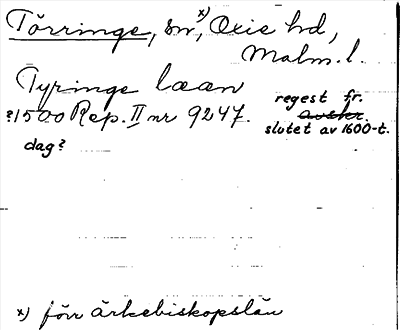 Törringe, sn, x) Oxie hd,
Malm. l.
Tyringe læan
?1500 Rep. II nr 9247. regest fr.
avskr.
slutet av 1600-t.
dag?
x) förr ärkebiskopslän